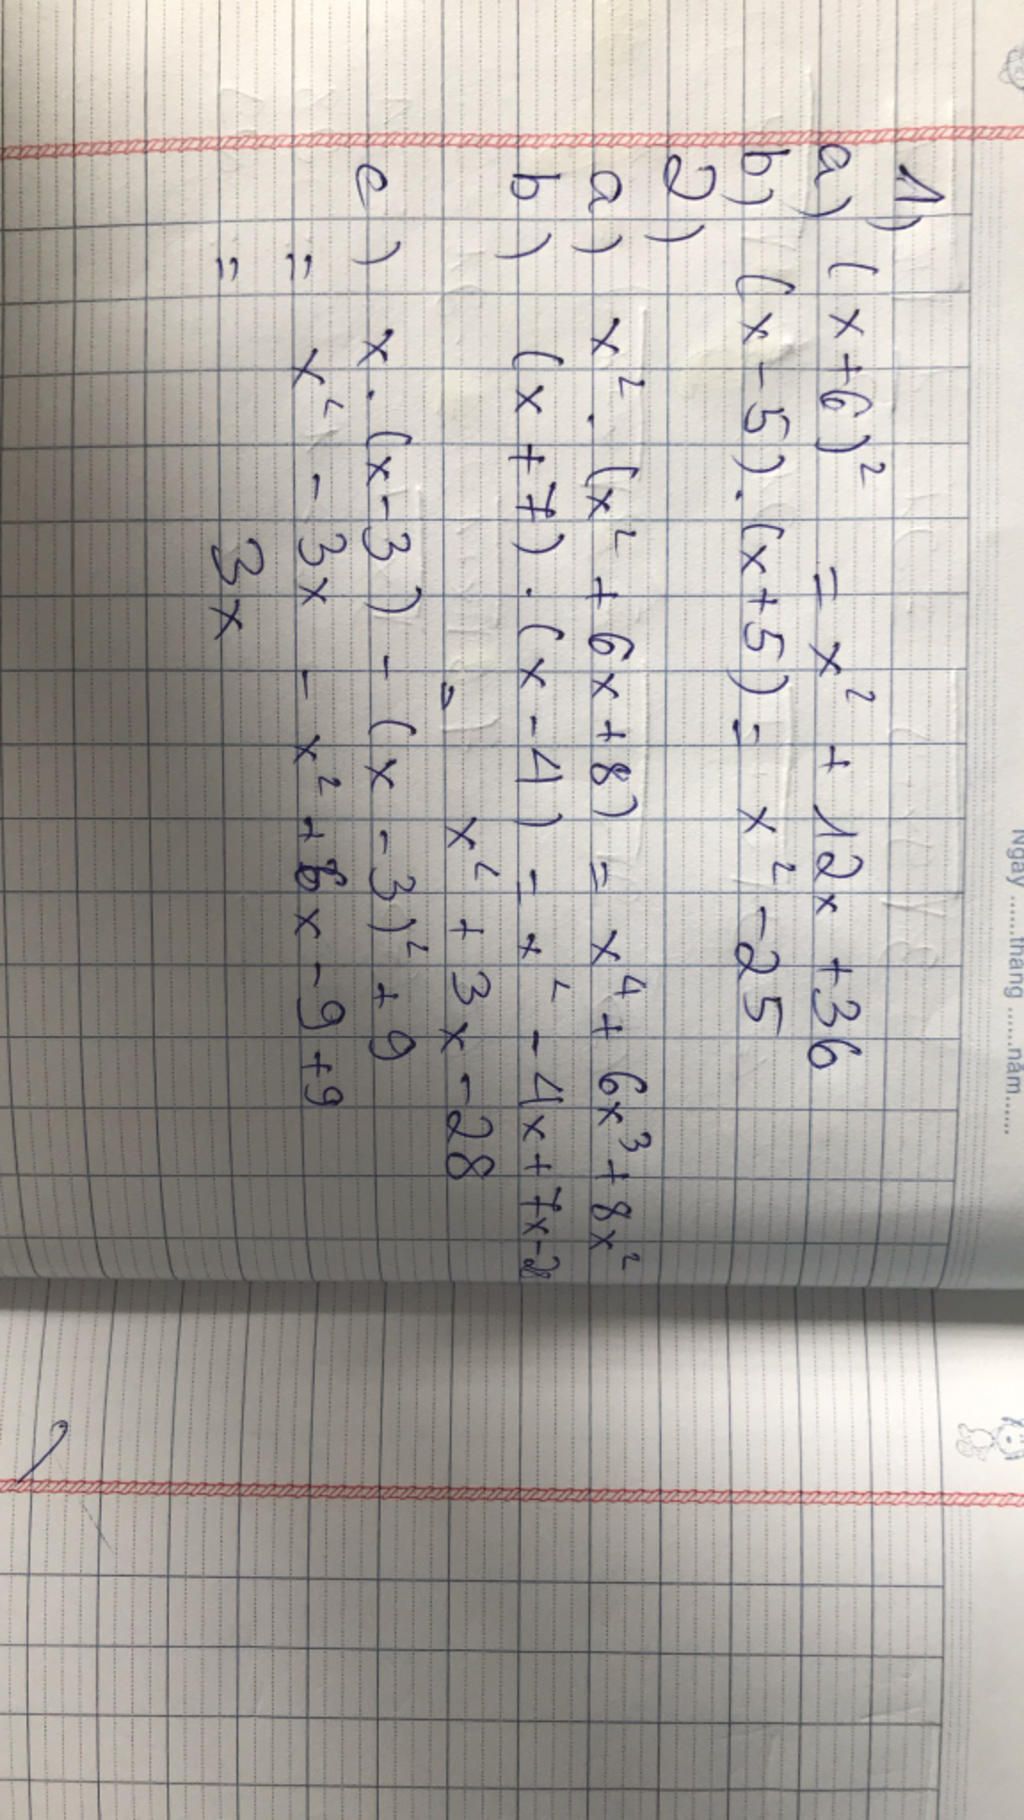 Ngày ......tháng ......năm......
1)
a) (x+6)² = x² + 12x + 36
b) (x-5).(x+5) = x² - 25
2)
a) x².(x² + 6x + 8) = x⁴ + 6x³ + 8x²
b) (x+7).(x-4) = x² - 4x + 7x - 28
= x² + 3x - 28
c) x.(x-3) - (x-3)² + 9
= x² - 3x - x² + 6x - 9 + 9
= 3x